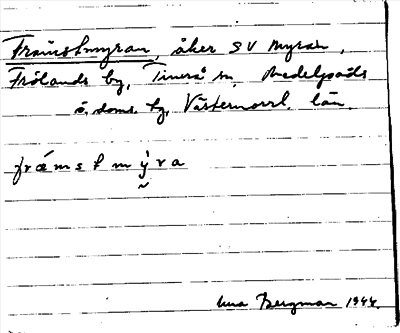 Främstmyran, åker SV Myran,
Frölands by, Timrå sn, Medelpads
ö. doms. tg, Västernorrl. län.
främstmỳra
Bergman 1944.